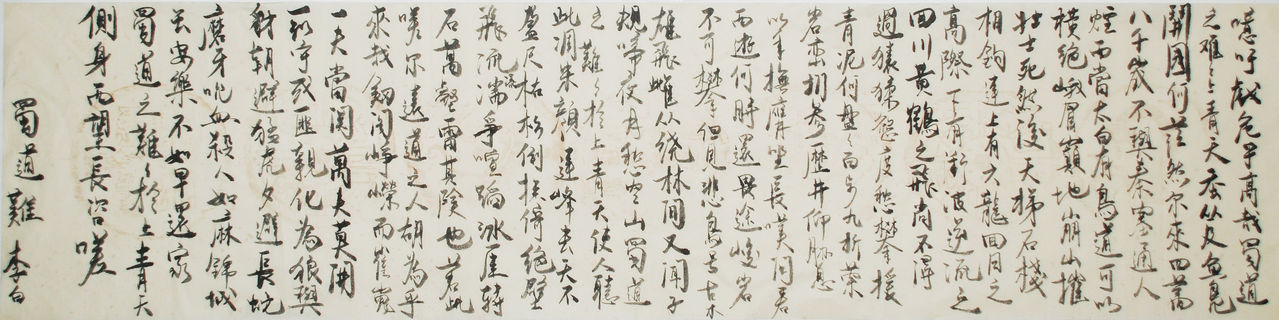 噫吁戲危乎高哉蜀道
之难々上青天蚕丛及魚鳧
開國何茫然尔來四萬
八千歲不與秦塞通人
烟西當太白有鳥道可以
横絕峨眉巔地崩山摧
壮士死然後天梯石棧
相鈎連上有六龍回日之
高際下有衝波逆流之
回川黄鶴之飛尚不得
過猿猱愁度愁攀援
青泥何盤々百步九折縈
岩巒捫参歷井仰脅息
以手撫膺坐長嘆問君
西遊何時還畏途巉岩
不可攀但見悲鳥号古木
雄飛雌从繞林間又聞子
規啼夜月愁空山蜀道
之難々於上青天使人聽
此凋朱顔連峰去天不
盈尺枯松倒挂倚絕壁
飛流湍爭喧豗砯崖轉
石萬壑雷其險也若此
嗟尔遠道之人胡為乎
來哉劍閣崢嶸而崔嵬
一夫當関萬夫莫開
所守或匪親化為狼與
豺朝避猛虎夕避長蛇
磨牙吮血殺人如麻錦城
云安樂不如早還家
蜀道之難々於上青天
側身西望長咨嗟
蜀道難 李白